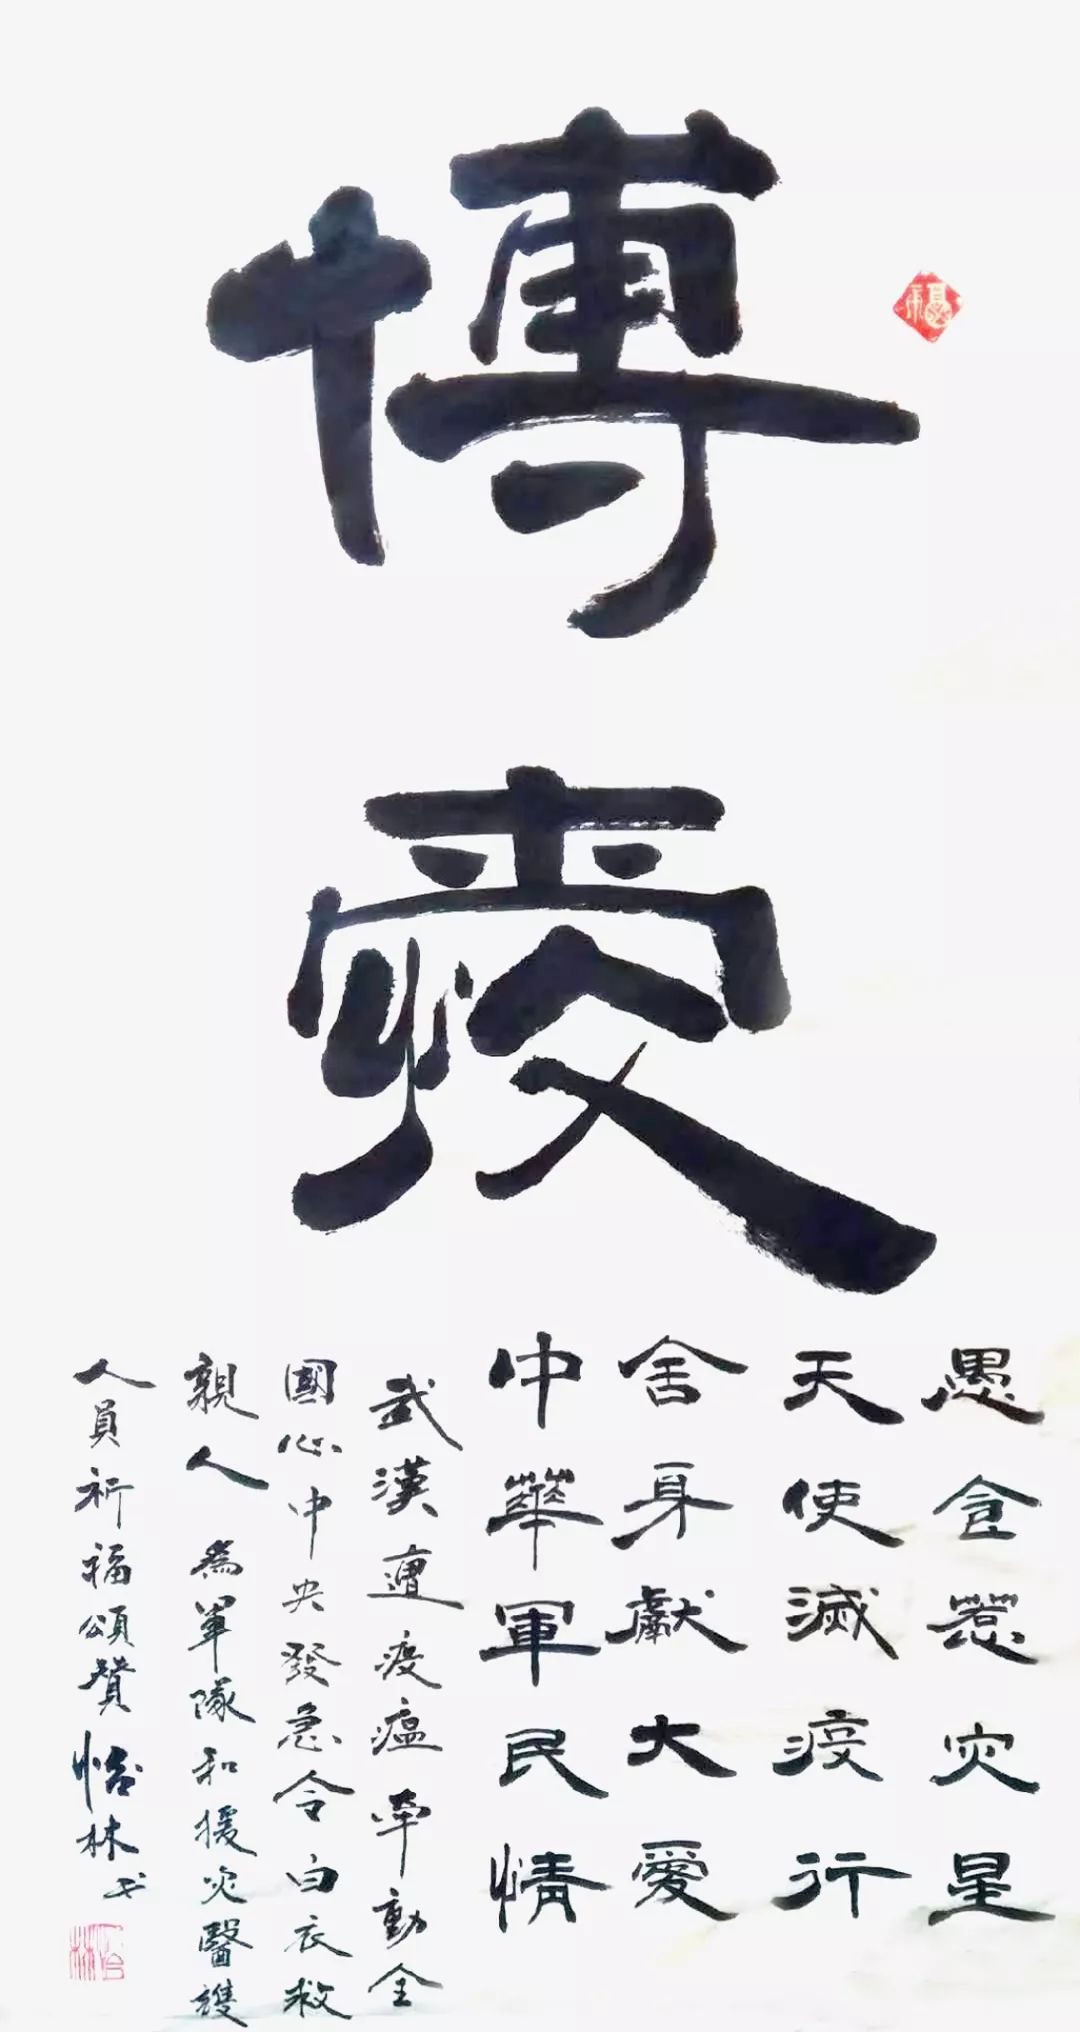 博
愛
福
愚食惹灾星
天使滅疫行
舍身獻大愛
中華軍民情
武漢遭疫瘟牽動全
國心中央發急令白衣救
親人 為軍隊和援灾醫護
人員祈福頌贊怡林书
怡林